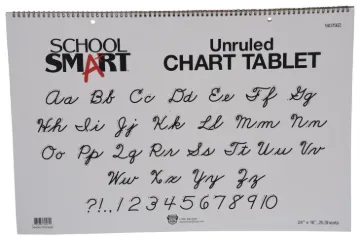 SCHOOL SMART
Unruled
CHART TABLET
Aa Bb Cc Dd Ee Ff Gg
Hh Ii Jj Kk Ll Mm Nn
Oo Pp Qq Rr Ss Tt Uu Vv
Ww Xx Yy Zz
?!.,12345678910
24" x 16", 25 Sheets